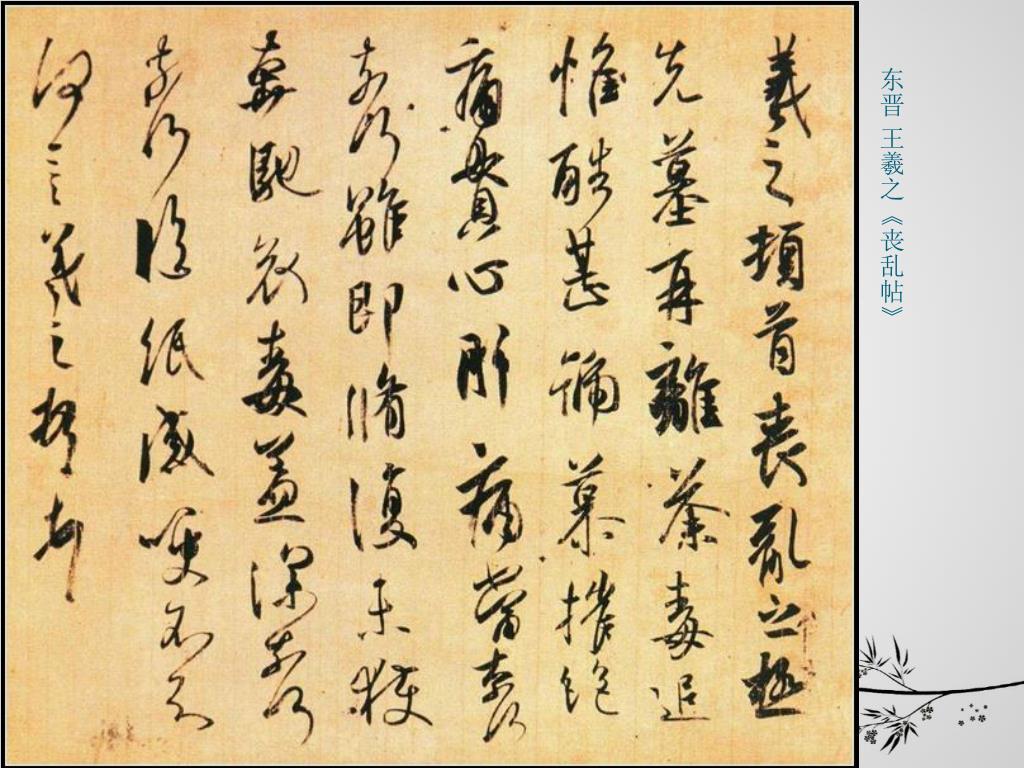 东晋 王羲之《丧乱帖》
羲之頓首喪亂之極
先墓再離荼毒追
惟酷甚號慕摧絶
痛貫心肝痛當奈何
奈何雖即脩復未獲
奔馳哀毒益深奈何
奈何臨紙感哽不知
何言羲之頓首頓首